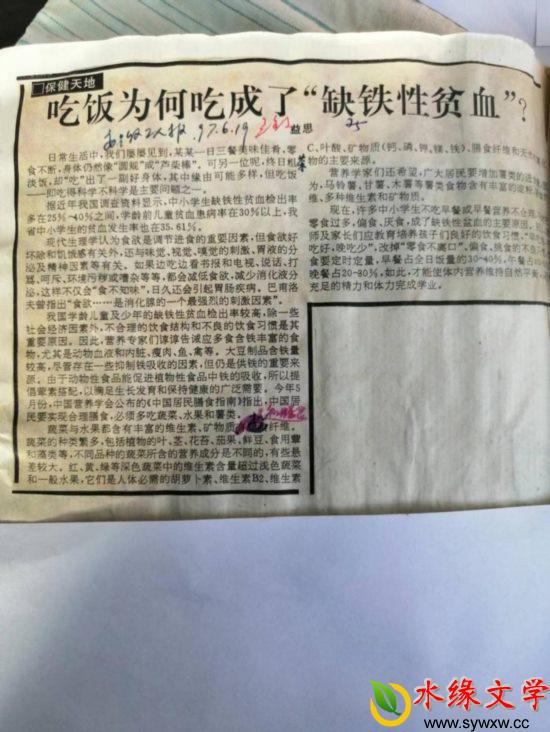 □保健天地
吃饭为何吃成了“缺铁性贫血”？
97.6.19
益思
日常生活中，我们屡屡见到，某某一日三餐美味佳肴，零
食不断，身体仍然像“圆规”或“芦柴棒”。可另一位呢，终日粗茶
淡饭，却“吃”出了一副好身体，其中缘由可能多样，但吃饭
——即吃得科学不科学是主要问题之一。
据近年我国调查资料显示，中小学生缺铁性贫血检出率
多在25%-40%之间，学龄前儿童贫血患病率在30%以上，我
省中小学生的贫血发生率也在35.61%。
现代生理学认为食欲是调节进食的重要因素，但食欲好
坏除和饥饿感有关外，还与味觉、视觉、嗅觉的刺激、胃液的分
泌及精神因素等有关。如果边吃边看书报和电视、说话、打
骂、呵斥、环境污秽或嘈杂等等，都会减低食欲，减少消化液分
泌，这样不仅会“食不知味”，日久还会引起胃肠疾病。巴甫洛
夫曾指出“食欲……是消化腺的一个最强烈的刺激因素”。
我国学龄儿童及少年的缺铁性贫血检出率较高，除一些
社会经济因素外，不合理的饮食结构和不良的饮食习惯是其
重要原因。因此，营养专家们谆谆告诫应多食含铁丰富的食
物，尤其是动物血液和内脏、瘦肉、鱼、禽等。大豆制品含铁量
较高，尽管存在一些抑制铁吸收的因素，但仍是供铁的重要来
源。由于动物性食品能促进植物性食品中铁的吸收，所以提
倡荤素搭配，以满足生长发育和保持健康的广泛需要。今年5
月份，中国营养学会公布的《中国居民膳食指南》指出，中国居
民要实现合理膳食，必须多吃蔬菜、水果和薯类。
蔬菜与水果都含有丰富的维生素、矿物质纤维。
蔬菜的种类繁多，包括植物的叶、茎、花苔、茄果、鲜豆、食用蕈
和藻类等，不同品种的蔬菜所含的营养成分是不同的，有些悬
差较大。红、黄、绿等深色蔬菜中的维生素含量超过浅色蔬菜
和一般水果，它们是人体必需的胡萝卜素、维生素B2、维生素
C、叶酸、矿物质（钙、磷、钾、镁、铁）、膳食纤维和天然
物的主要来源。
营养学家们还希望，广大居民要增加薯类的
为，马铃薯、甘薯、木薯等薯类食物含有丰富的
维、多种维生素和矿物质。
现在，许多中小学生不吃早餐或早餐营养不合理、
零食过多，偏食、厌食，成了缺铁性贫血的主要原因。
师及家长们应教育培养孩子们良好的饮食习惯，
吃好，晚吃少”，改掉“零食不离口”、偏食、挑食的不良
食要定时定量，早餐占全日饭量的30-40%、午餐占
晚餐占20-80%，如此，才能使体内营养维持自然平衡，
充足的精力和体力完成学业。
水缘文学
www.sywxw.cc